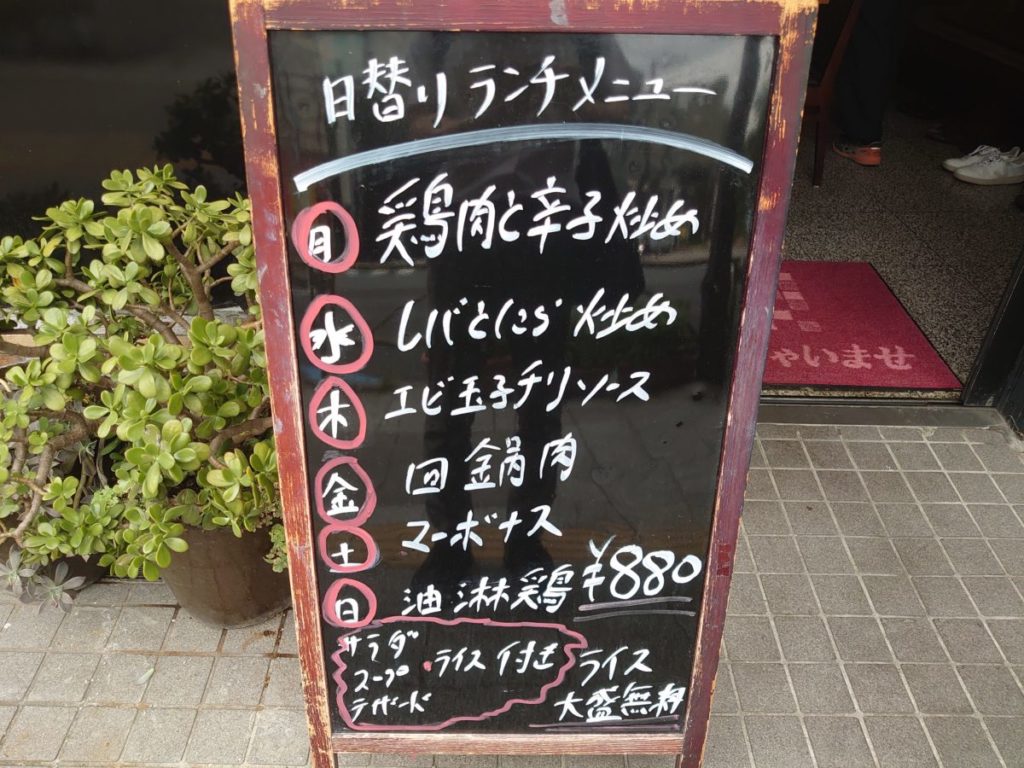 日替りランチメニュー
月 鶏肉と辛子炒め
水 レバとにら炒め
木 エビ玉子チリソース
金 回鍋肉
土 マーボナス
日 油淋鶏 ¥880
サラダ
スープ・ライス付き
デザート
ライス
大盛無料
ゃいませ